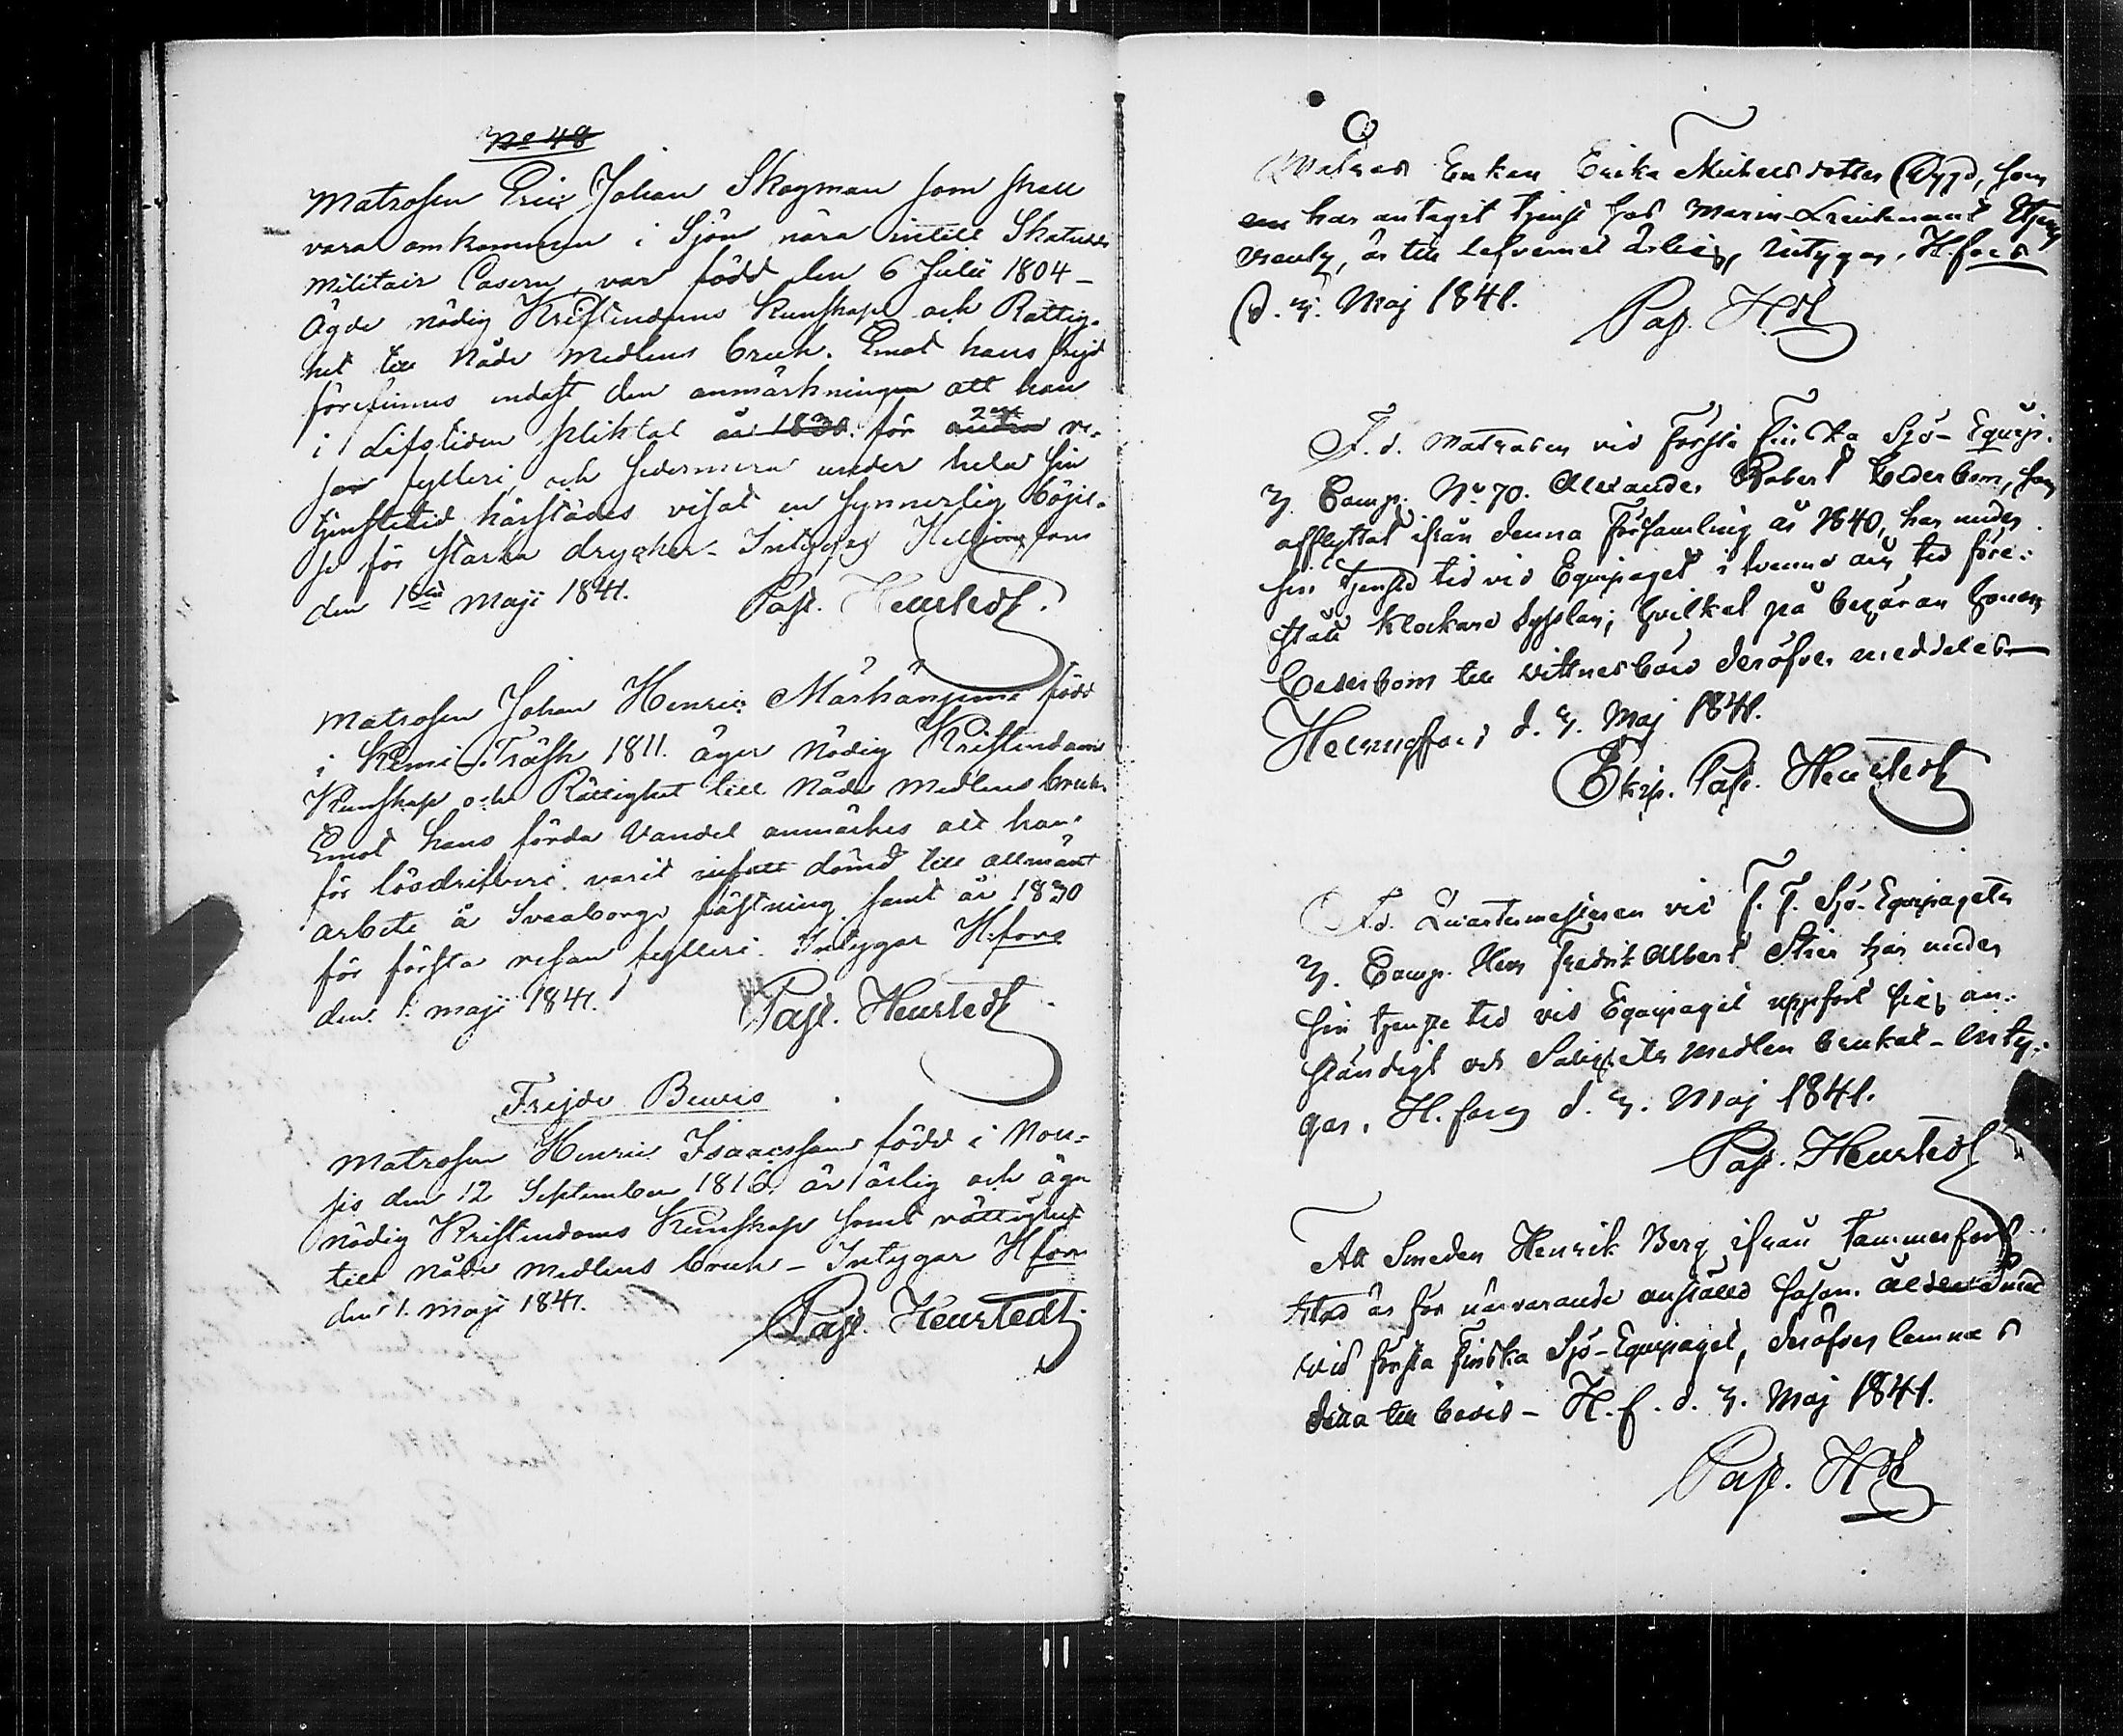 No 48
Matrosen Eric Johan Skogman som skall
vara omkommen i Sjön nära intill Skatudds
Militair Casern, var född den 6 Julii 1804 –
Ägde nödig Kristendoms Kunskap och Rättig-
het till Nåde Medlens bruk. Emot hans frejd
förefinnes endast den anmärkningen att han
i Lifstiden pliktat år 1830. för andra 2dra re-
san fylleri, och sedermera under hela sin
tjenstetid härstädes visat en synnerlig böjel-
se för starka drycker – Intygas Helsingfors
den 1sta Maji 1841. Past. Heurstedt.
Matrosen Johan Henric född
i Kemi Träsk 1811. äger nödig Kristendoms
Kunskap och Rättighet till Nåde Medlens bruk.
Emot hans förda Vandel anmärkes att han
för lösdrifveri varit dömd till allmänt
arbete å Sveaborgs fästning samt år 1830
för första resan fylleri. Intygar H:fors
den 1. Maji 1841. Past. Heurstedt.
Frejde Bewis
Matrosen Henric Isaacsson född i Nou-
sis den 12 September 1816. är ärlig och äger
nödig Kristendoms Kunskap samt rättighet
till Nåde Medlens bruk – Intygar H:fors
den 1. Maji 1841. Past. Heurstedt.
Enkan Erika Michelsdotter Dygd, som
har antagit tjenst hos Marin-Lieutenant
är till lefvernet ärlig, intygar. H.fors
d. 3. Maj 1841. Past. Hdt
F.d. Matrosen vid Första Finska Sjö-Equip.
3. Comp. No 70. Alexander Robert Cederbom, som
afflyttat ifrån denna Församling år 1840, har under
sin tjenste tid vid Equipaget i tvenne års tid före-
stått Klockare Sysslan; hvilket på begäran honom
Cederbom till vittnesbörd deröfver meddelas –
Helsingfors d. 3. Maj 1841.
Ekip. Past. Heurstedt
F.d. Quartermästaren vid F. F. Sjö-Equipagets
3. Comp. Herr Fredrik Albert har under
sin tjenste tid vid Equipaget uppfört sig an-
ständigt och Salighets medlen brukat – Inty-
gar. H.fors d. 3. Maj 1841.
Past. Heurstedt
Att Smeden Henrik Berg ifrån Tammerfors
stad är för närvarande anställd såsom
vid första Finska Sjö-Equipaget, deröfver lemnas
detta till bevis – H.f. d. 3. Maj 1841.
Past. Hdt